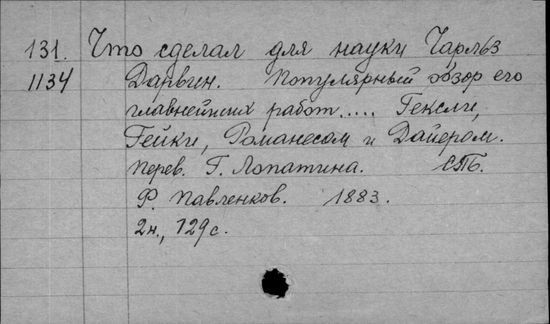 131. Что сделал для науки Чарльз
1134 Дарвин. Популярный обзор его
главнейших работ.... Гексли,
Гейки, Романесом и Дайером.
Перев. Г. Лопатина. СПБ.
Ф. Павленков. 1883.
2н., 129 с.